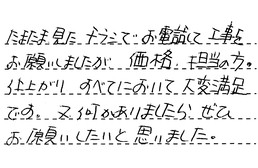 たまたま見たチラシでお電話して工事を
お願いしましたが 価格、担当の方。
仕上がり すべてにおいて大変満足
です。又何かありましたら ぜひ
お願いしたいと思いました。